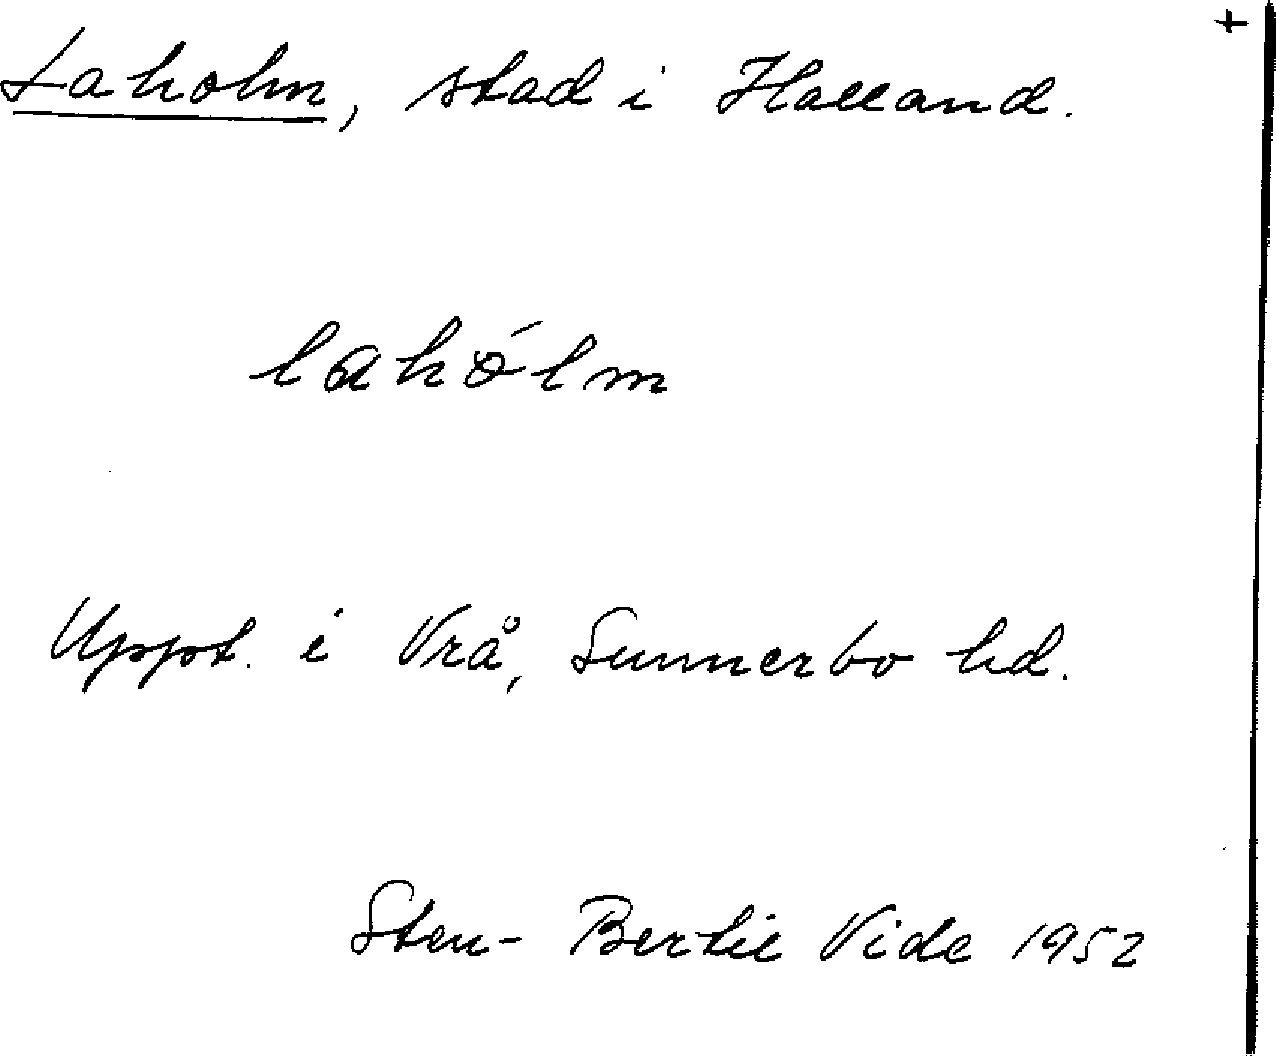 +
Laholm, stad i Halland.
lahólm
Uppt. i Vrå, Sunnerbo hd.
Sten-Bertil Vide 1952